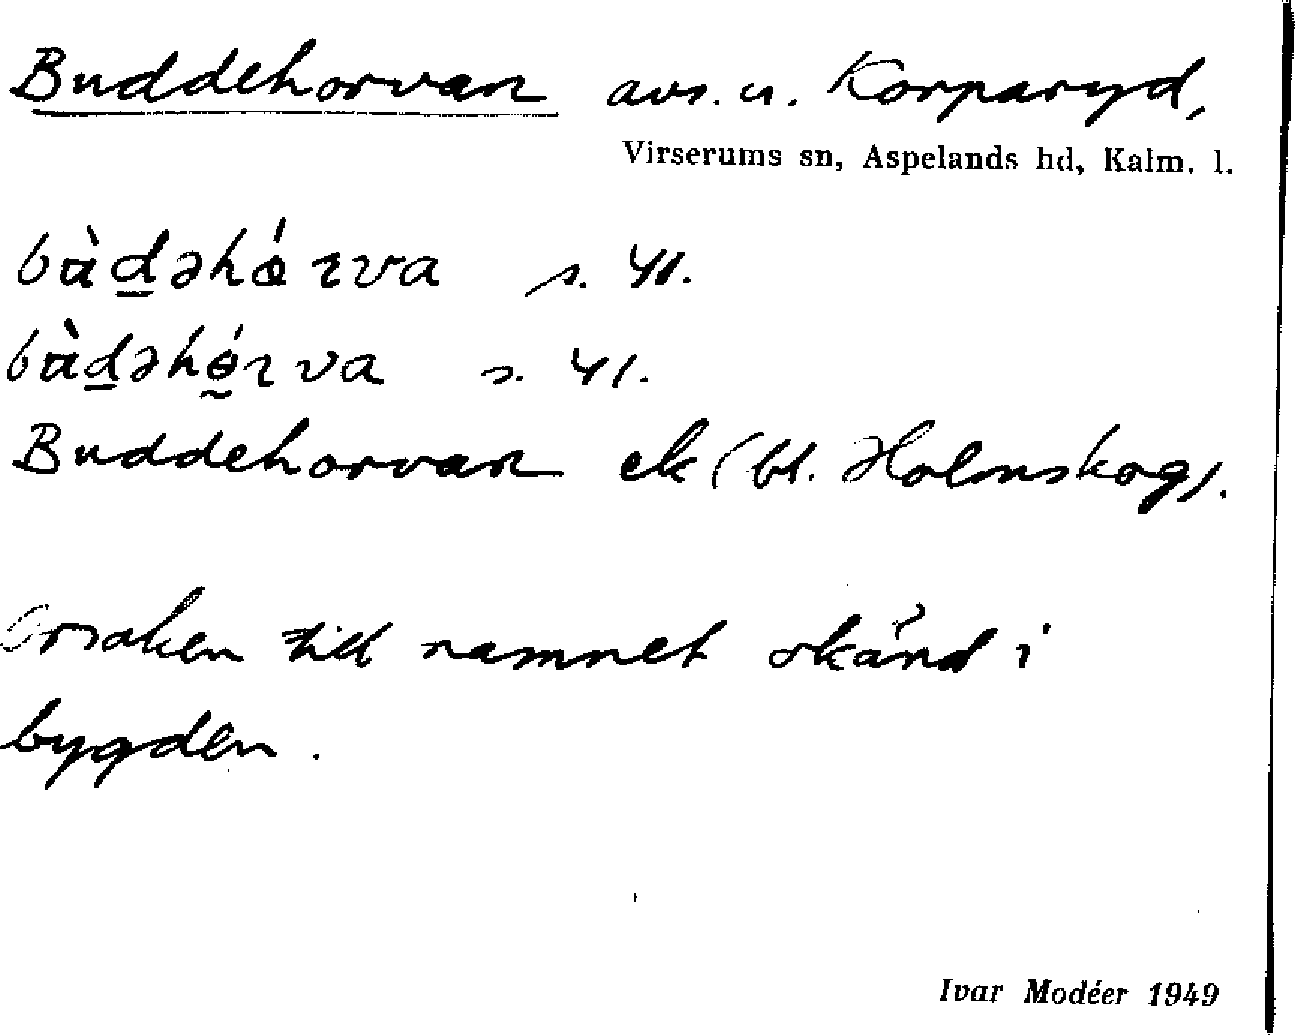 Buddehorvan avs. u. Korparyd,
Virserums sn, Aspelands hd, Kalm. l.
bὰd̲əhǿɿva s. yl.
bὰd̲əhɵ́ɿva s. yl.
Buddehorvan ek (bl. Holmskog).
Orsaken till namnet okänd i
bygden.
Ivar Modéer 1949